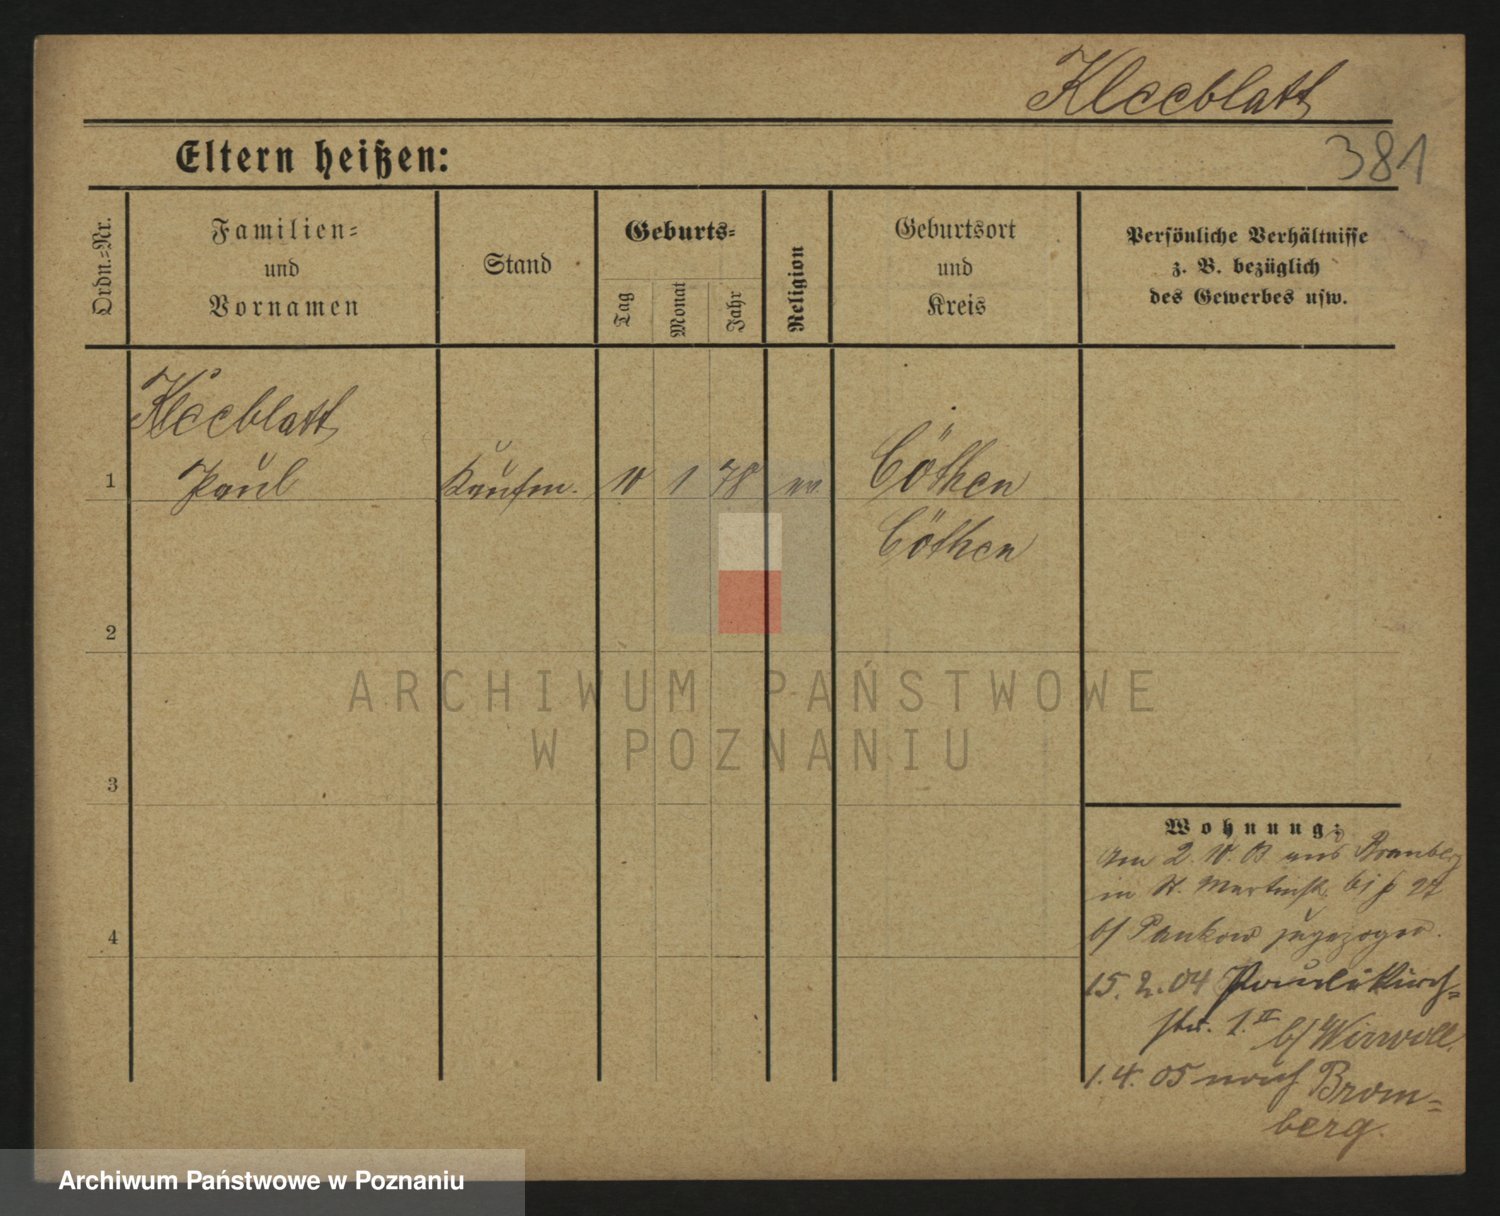 Kleeblatt
381
Eltern heißen:
Ordn.-Nr.
Familien-
und
Vornamen
Stand
Geburts-
Tag
Monat
Jahr
Religion
Geburtsort
und
Kreis
Persönliche Verhältnisse
z. B. bezüglich
des Gewerbes usw.
Kleeblatt
1 Paul Kaufm. 10 1 78 ev. Cöthen
Cöthen
2
3
4
Wohnung:
Am 2. 10. 03 aus
in St. Martinstr.
b/ Pankow zugezogen.
15. 2. 04 Paulikirch-
str. 1. II b/
1. 4. 05 nach Brom-
berg.
ARCHIWUM PAŃSTWOWE
W POZNANIU
Archiwum Państwowe w Poznaniu